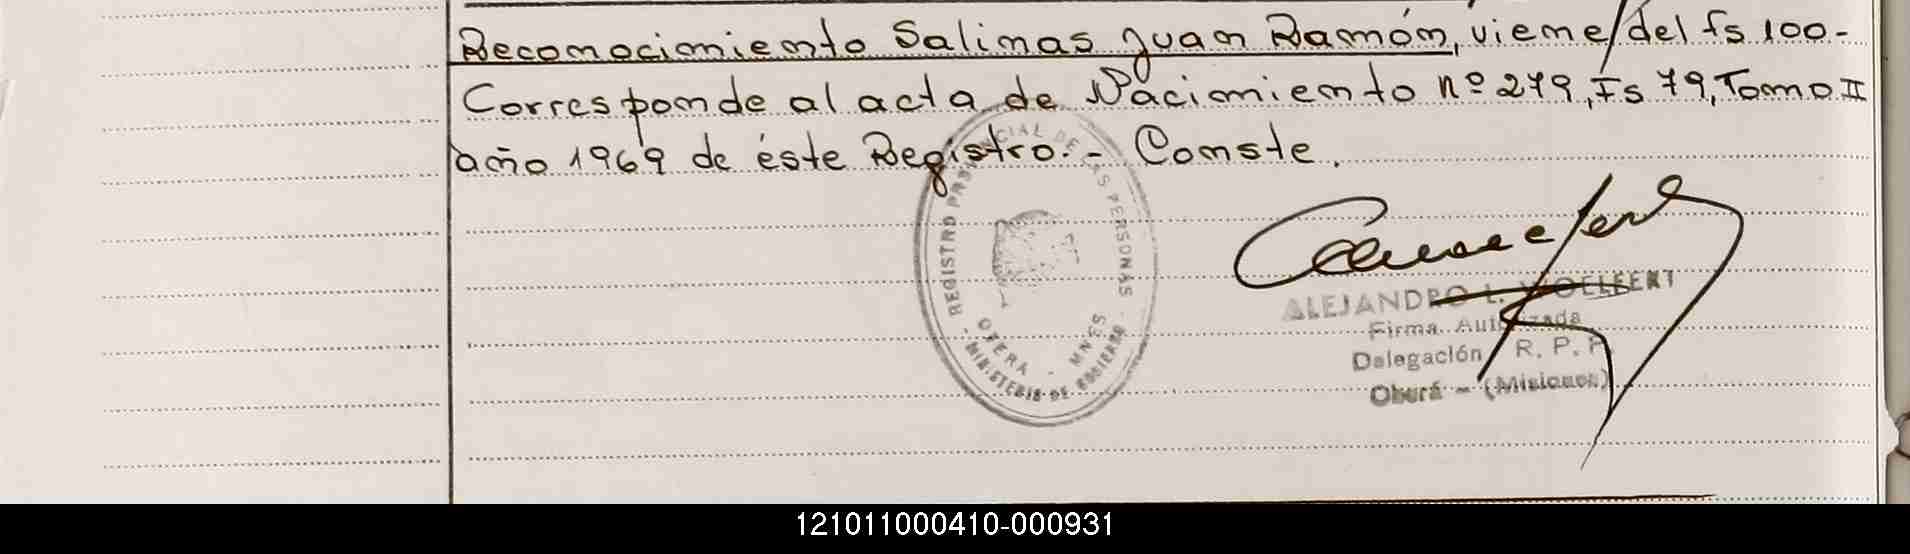 Reconocimiento Salinas Juan Ramón, viene/del fs 100-
Corresponde al acta de Nacimiento nº 279, Fs 79, Tomo II
año 1969 de éste Registro.- Conste.
- REGISTRO PROVINCIAL DE LAS PERSONAS -
MNES
- MINISTERIO DE GOBIERNO
ALEJANDRO L. WOELFERT
Firma Autorizada
Delegación R. P. P.
Oberá - (Misiones)
121011000410-000931